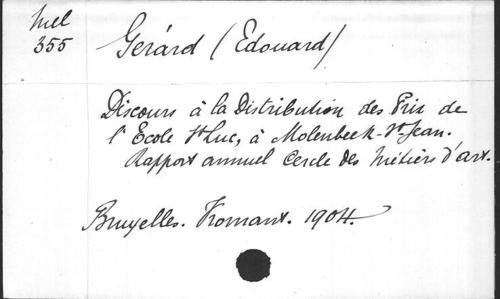 Mel
355
Gérard (Edouard)
Discours à la Distribution des Prix de
l'Ecole St Luc, à Molenbeek-St-Jean.
Rapport annuel Cercle des Métiers d'art.
Bruxelles. Vromant. 1904.